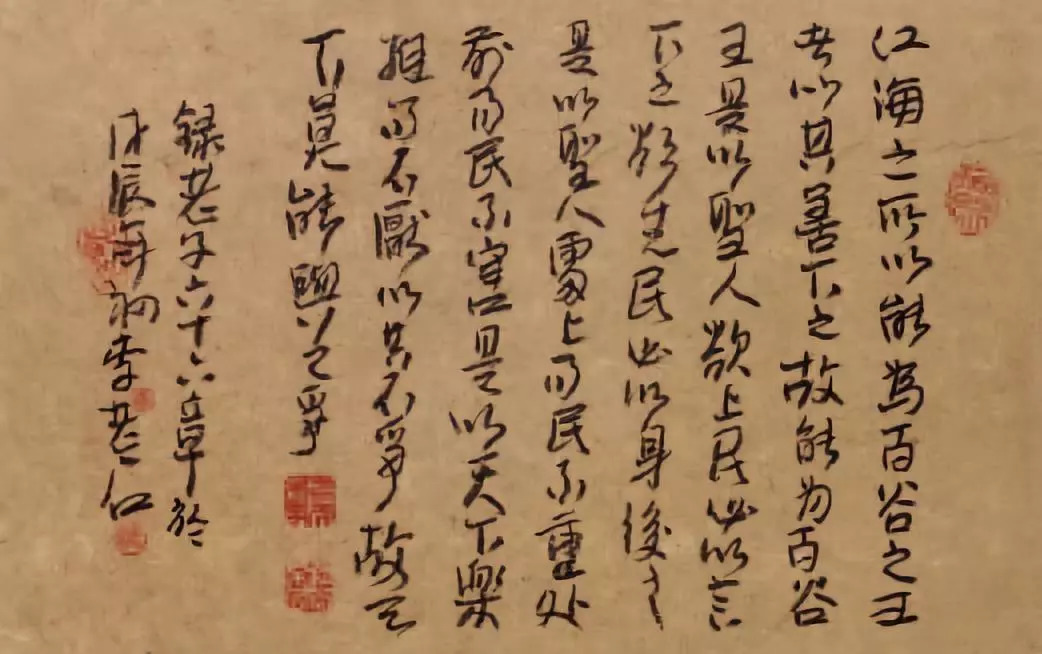 江海之所以能為百谷之王
者以其善下之故能为百谷
王是以聖人欲上民必以言
下之欲先民必以身後之
是以聖人處上而民不重处
前而民不害是以天下樂
推而不厭以其不爭故天
下莫能與之爭
録老子六十六章於
辰年初李老仁